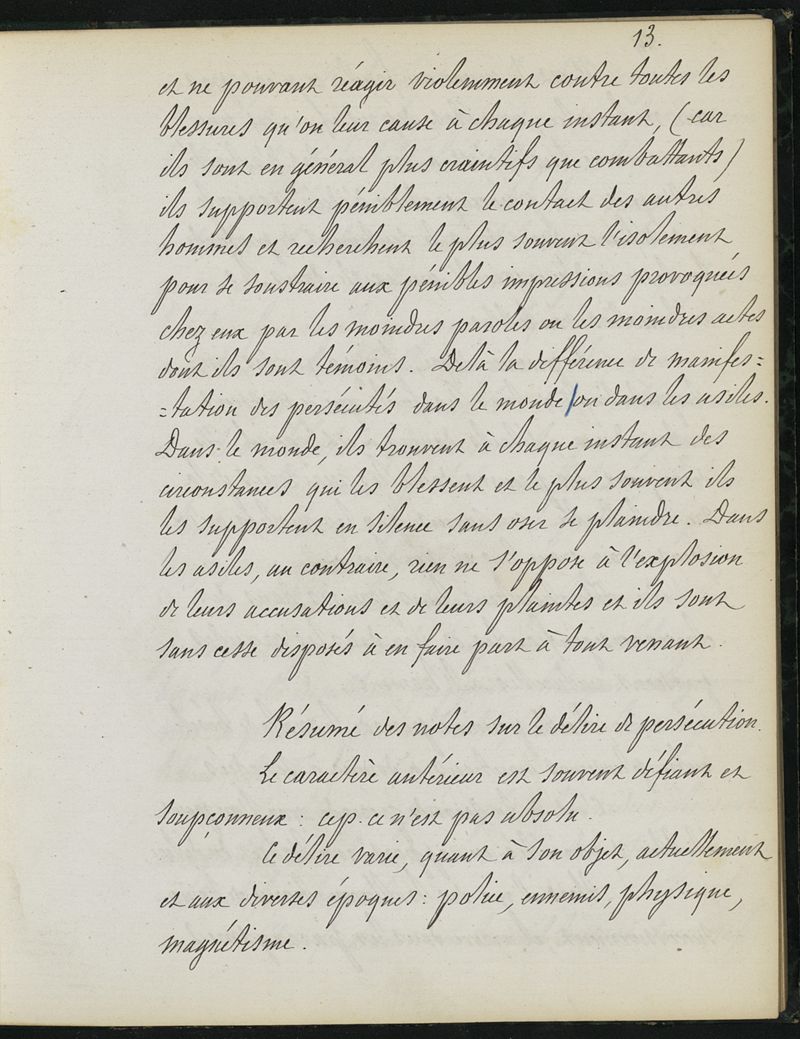 13.
et ne pouvant réagir violemment contre toutes les
blessures qu'on leur cause à chaque instant, (car
ils sont en général plus craintifs que combattants)
ils supportent péniblement le contact des autres
hommes et recherchent le plus souvent l'isolement
pour se soustraire aux pénibles impressions provoquées
chez eux par les moindres paroles ou les moindres actes
dont ils sont témoins. Delà la différence de manifes=
=tation des persécutés dans le monde/ou dans les asiles.
Dans le monde, ils trouvent à chaque instant des
circonstances qui les blessent et le plus souvent ils
les supportent en silence sans oser se plaindre. Dans
les asiles, au contraire, rien ne s'oppose à l'explosion
de leurs accusations et de leurs plaintes et ils sont
sans cesse disposés à en faire part à tout venant.
Résumé des notes sur le délire de persécution.
Le caractère antérieur est souvent défiant et
soupçonneux : cep. ce n'est pas absolu.
Ce délire varie, quant à son objet, actuellement
et aux diverses époques : police, ennemis, physique,
magnétisme.